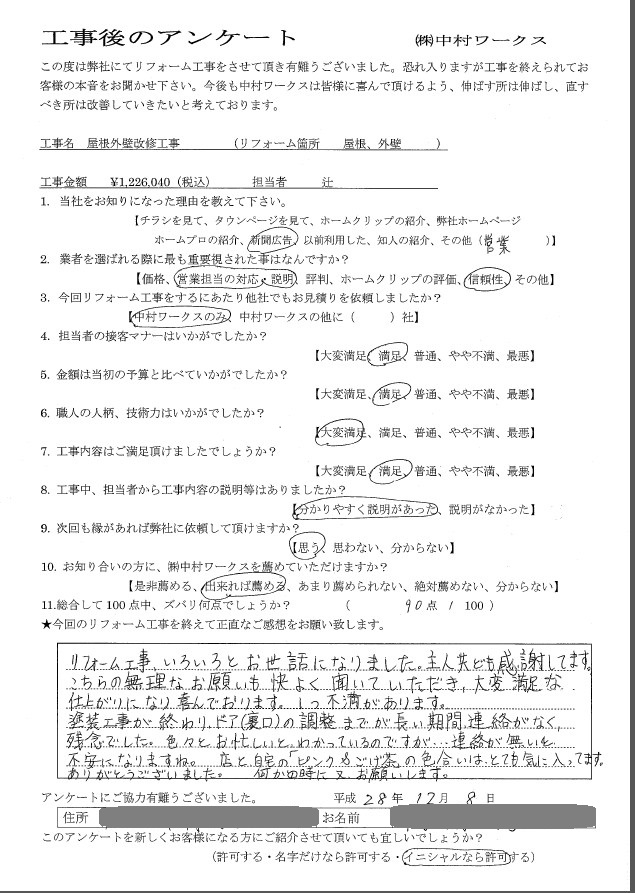 工事後のアンケート　㈱中村ワークス
この度は弊社にてリフォーム工事をさせて頂き有難うございました。恐れ入りますが工事を終えられてお
客様の本音をお聞かせ下さい。今後も中村ワークスは皆様に喜んで頂けるよう、伸ばす所は伸ばし、直す
べき所は改善していきたいと考えております。
工事名　屋根外壁改修工事　（リフォーム箇所　屋根、外壁　）
工事金額　¥1,226,040（税込）　担当者　辻
1. 当社をお知りになった理由を教えて下さい。
【チラシを見て、タウンページを見て、ホームクリップの紹介、弊社ホームページ
ホームプロの紹介、新聞広告、以前利用した、知人の紹介、その他（営業　）】
2. 業者を選ばれる際に最も重要視された事はなんですか？
【価格、営業担当の対応・説明、評判、ホームクリップの評価、信頼性、その他】
3. 今回リフォーム工事をするにあたり他社でもお見積りを依頼しましたか？
【中村ワークスのみ、中村ワークスの他に（　）社】
4. 担当者の接客マナーはいかがでしたか？
【大変満足、満足、普通、やや不満、最悪】
5. 金額は当初の予算と比べていかがでしたか？
【大変満足、満足、普通、やや不満、最悪】
6. 職人の人柄、技術力はいかがでしたか？
【大変満足、満足、普通、やや不満、最悪】
7. 工事内容はご満足頂けましたでしょうか？
【大変満足、満足、普通、やや不満、最悪】
8. 工事中、担当者から工事内容の説明等はありましたか？
【分かりやすく説明があった、説明がなかった】
9. 次回も縁があれば弊社に依頼して頂けますか？
【思う、思わない、分からない】
10. お知り合いの方に、㈱中村ワークスを薦めていただけますか？
【是非薦める、出来れば薦める、あまり薦められない、絶対薦めない、分からない】
11.総合して100点中、ズバリ何点でしょうか？　（　90点 / 100 ）
★今回のリフォーム工事を終えて正直なご感想をお願い致します。
リフォーム工事、いろいろとお世話になりました。主人共ども感謝してます。
こちらの無理なお願いも快よく聞いていただき、大変満足な
仕上がりになり喜んでおります。1つ不満があります。
塗装工事が終わり、ドア(裏口)の調整までが長い期間連絡がなく、
残念でした。色々とお忙しいと、わかっているのですが…連絡が無いと
不安になりますね。店と自宅の「ピンク&こげ茶」の色合いは、とても気に入ってます。
ありがとうございました。何かの時に又、お願いします。
アンケートにご協力有難うございました。　平成28年12月8日
住所　お名前
このアンケートを新しくお客様になる方にご紹介させて頂いても宜しいでしょうか？
（許可する・名字だけなら許可する・イニシャルなら許可する）